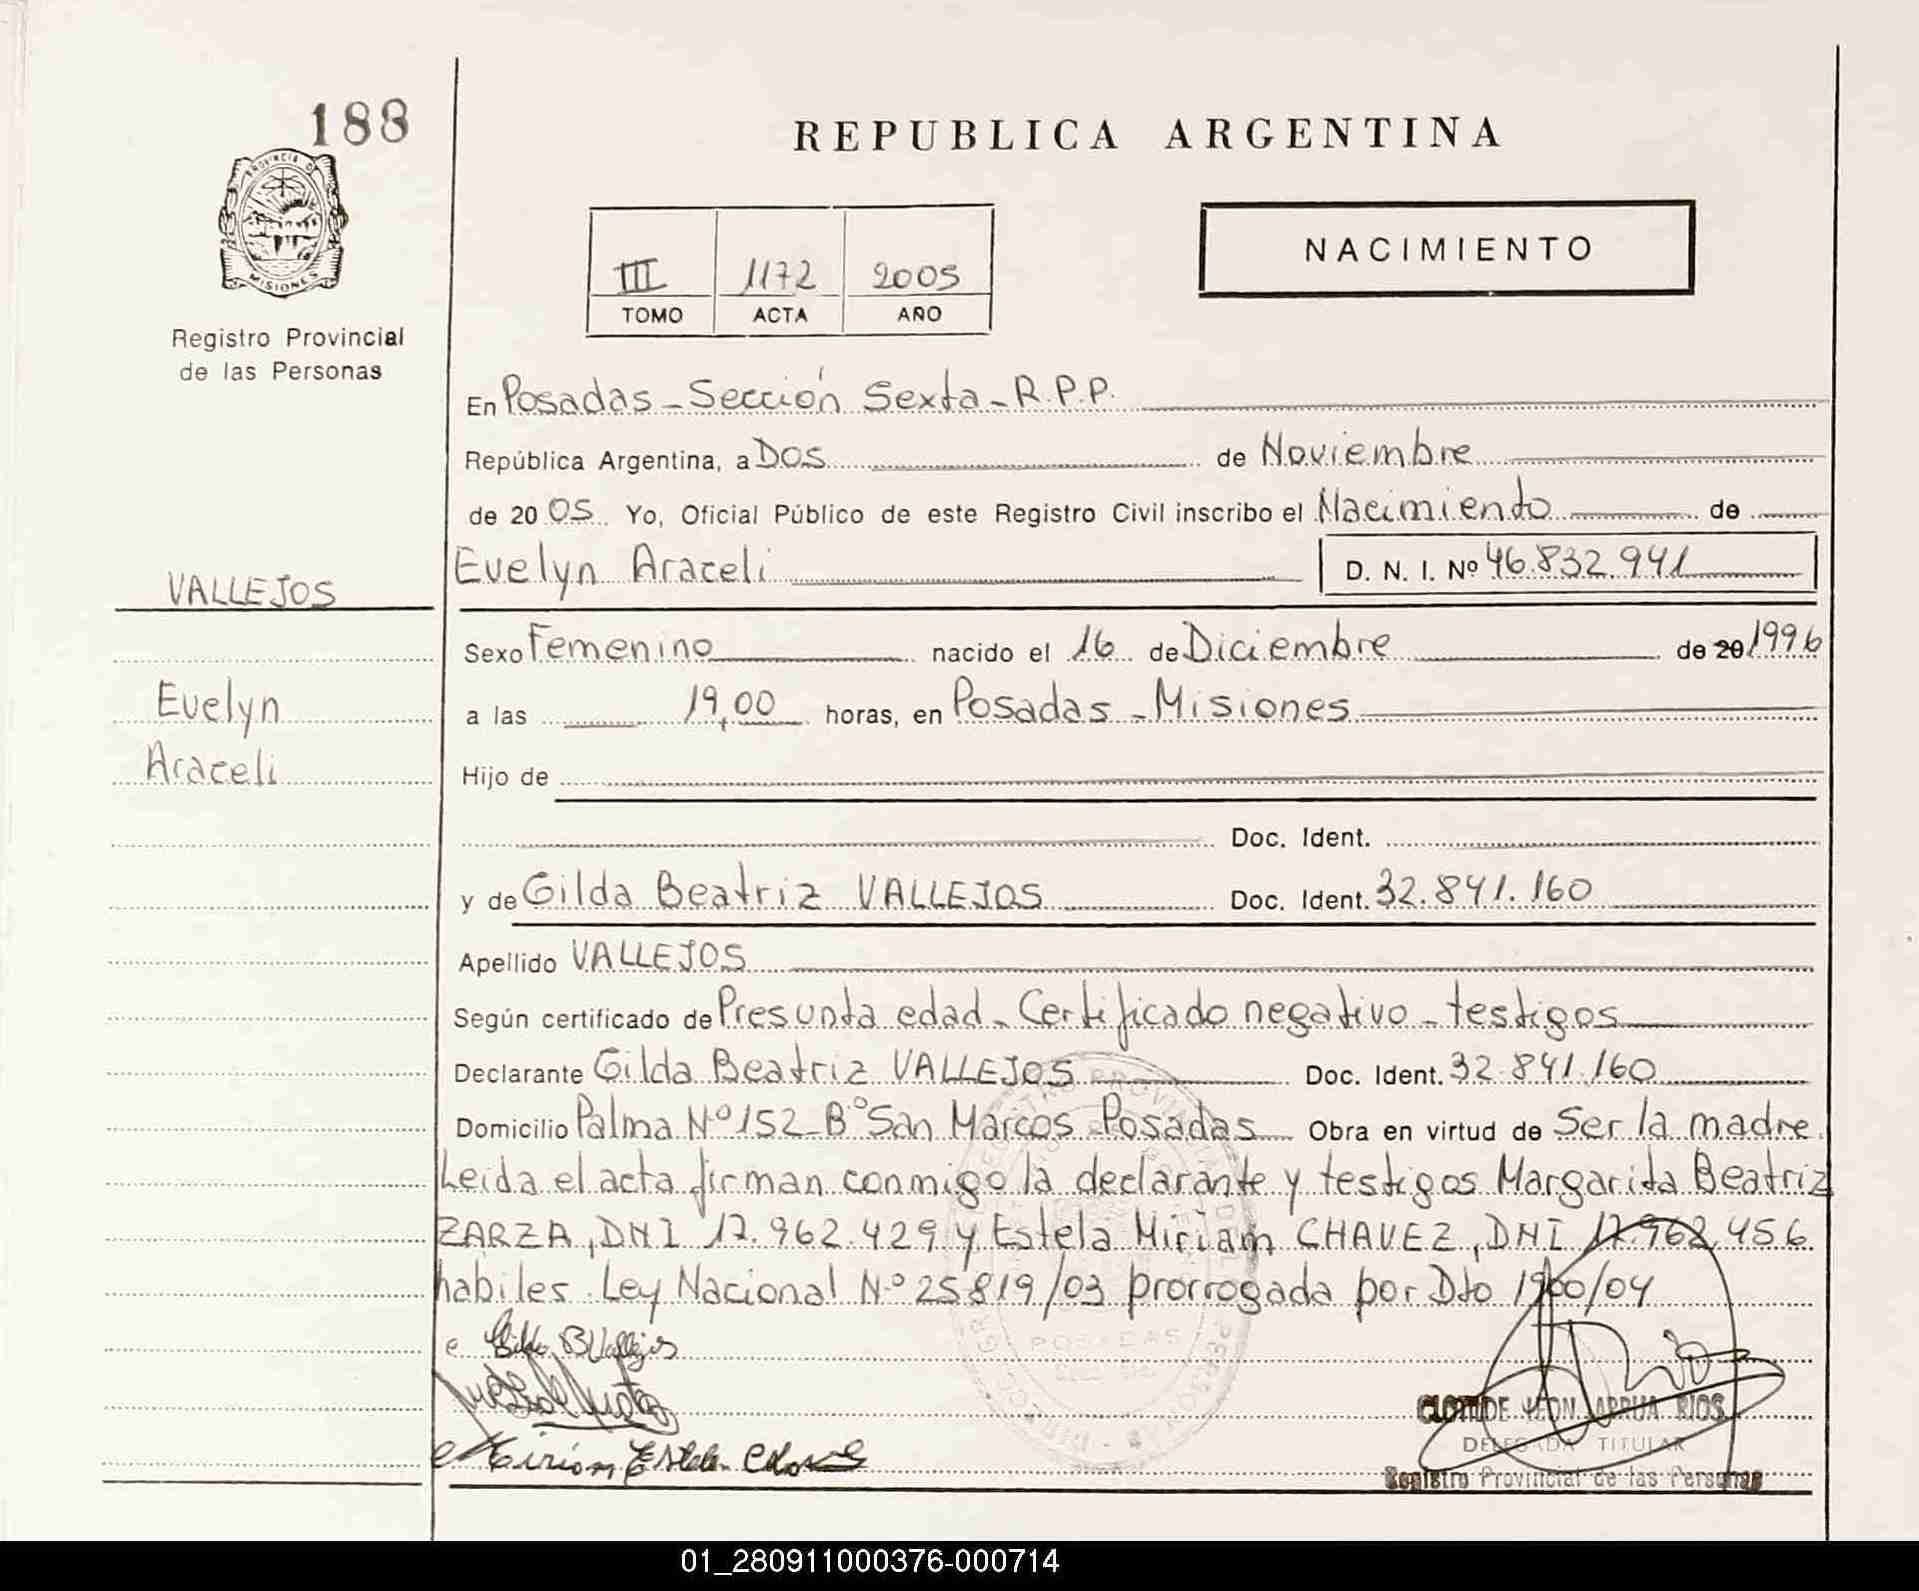 188
PROVINCIA D
MISIONES
Registro Provincial
de las Personas
REPUBLICA ARGENTINA
III 1172 2005
TOMO ACTA AÑO
NACIMIENTO
En Posadas - Sección Sexta - R.P.P.
República Argentina, a Dos de Noviembre
de 2005 Yo, Oficial Público de este Registro Civil inscribo el Nacimiento de
Evelyn Araceli D. N. I. Nº 46.832.941
VALLEJOS
Evelyn
Araceli
Sexo Femenino nacido el 16 de Diciembre de 20 1996
a las 19,00 horas, en Posadas - Misiones
Hijo de
Doc. Ident.
y de Gilda Beatriz VALLEJOS Doc. Ident. 32.841.160
Apellido VALLEJOS
Según certificado de Presunta edad - Certificado negativo - testigos
Declarante Gilda Beatriz VALLEJOS Doc. Ident. 32.841.160
Domicilio Palma Nº 152 - Bº San Marcos - Posadas Obra en virtud de Ser la madre.
Leida el acta firman conmigo la declarante y testigos Margarita Beatriz
ZARZA, DNI 17.962.429 y Estela Miriam CHAVEZ, DNI 17.962.456
habiles. Ley Nacional Nº 25819/03 prorrogada por Dto 1900/04
POSADAS
CLOTILDE YEON ARRUA RIOS
DELEGADA TITULAR
Registro Provincial de las Personas
01_280911000376-000714